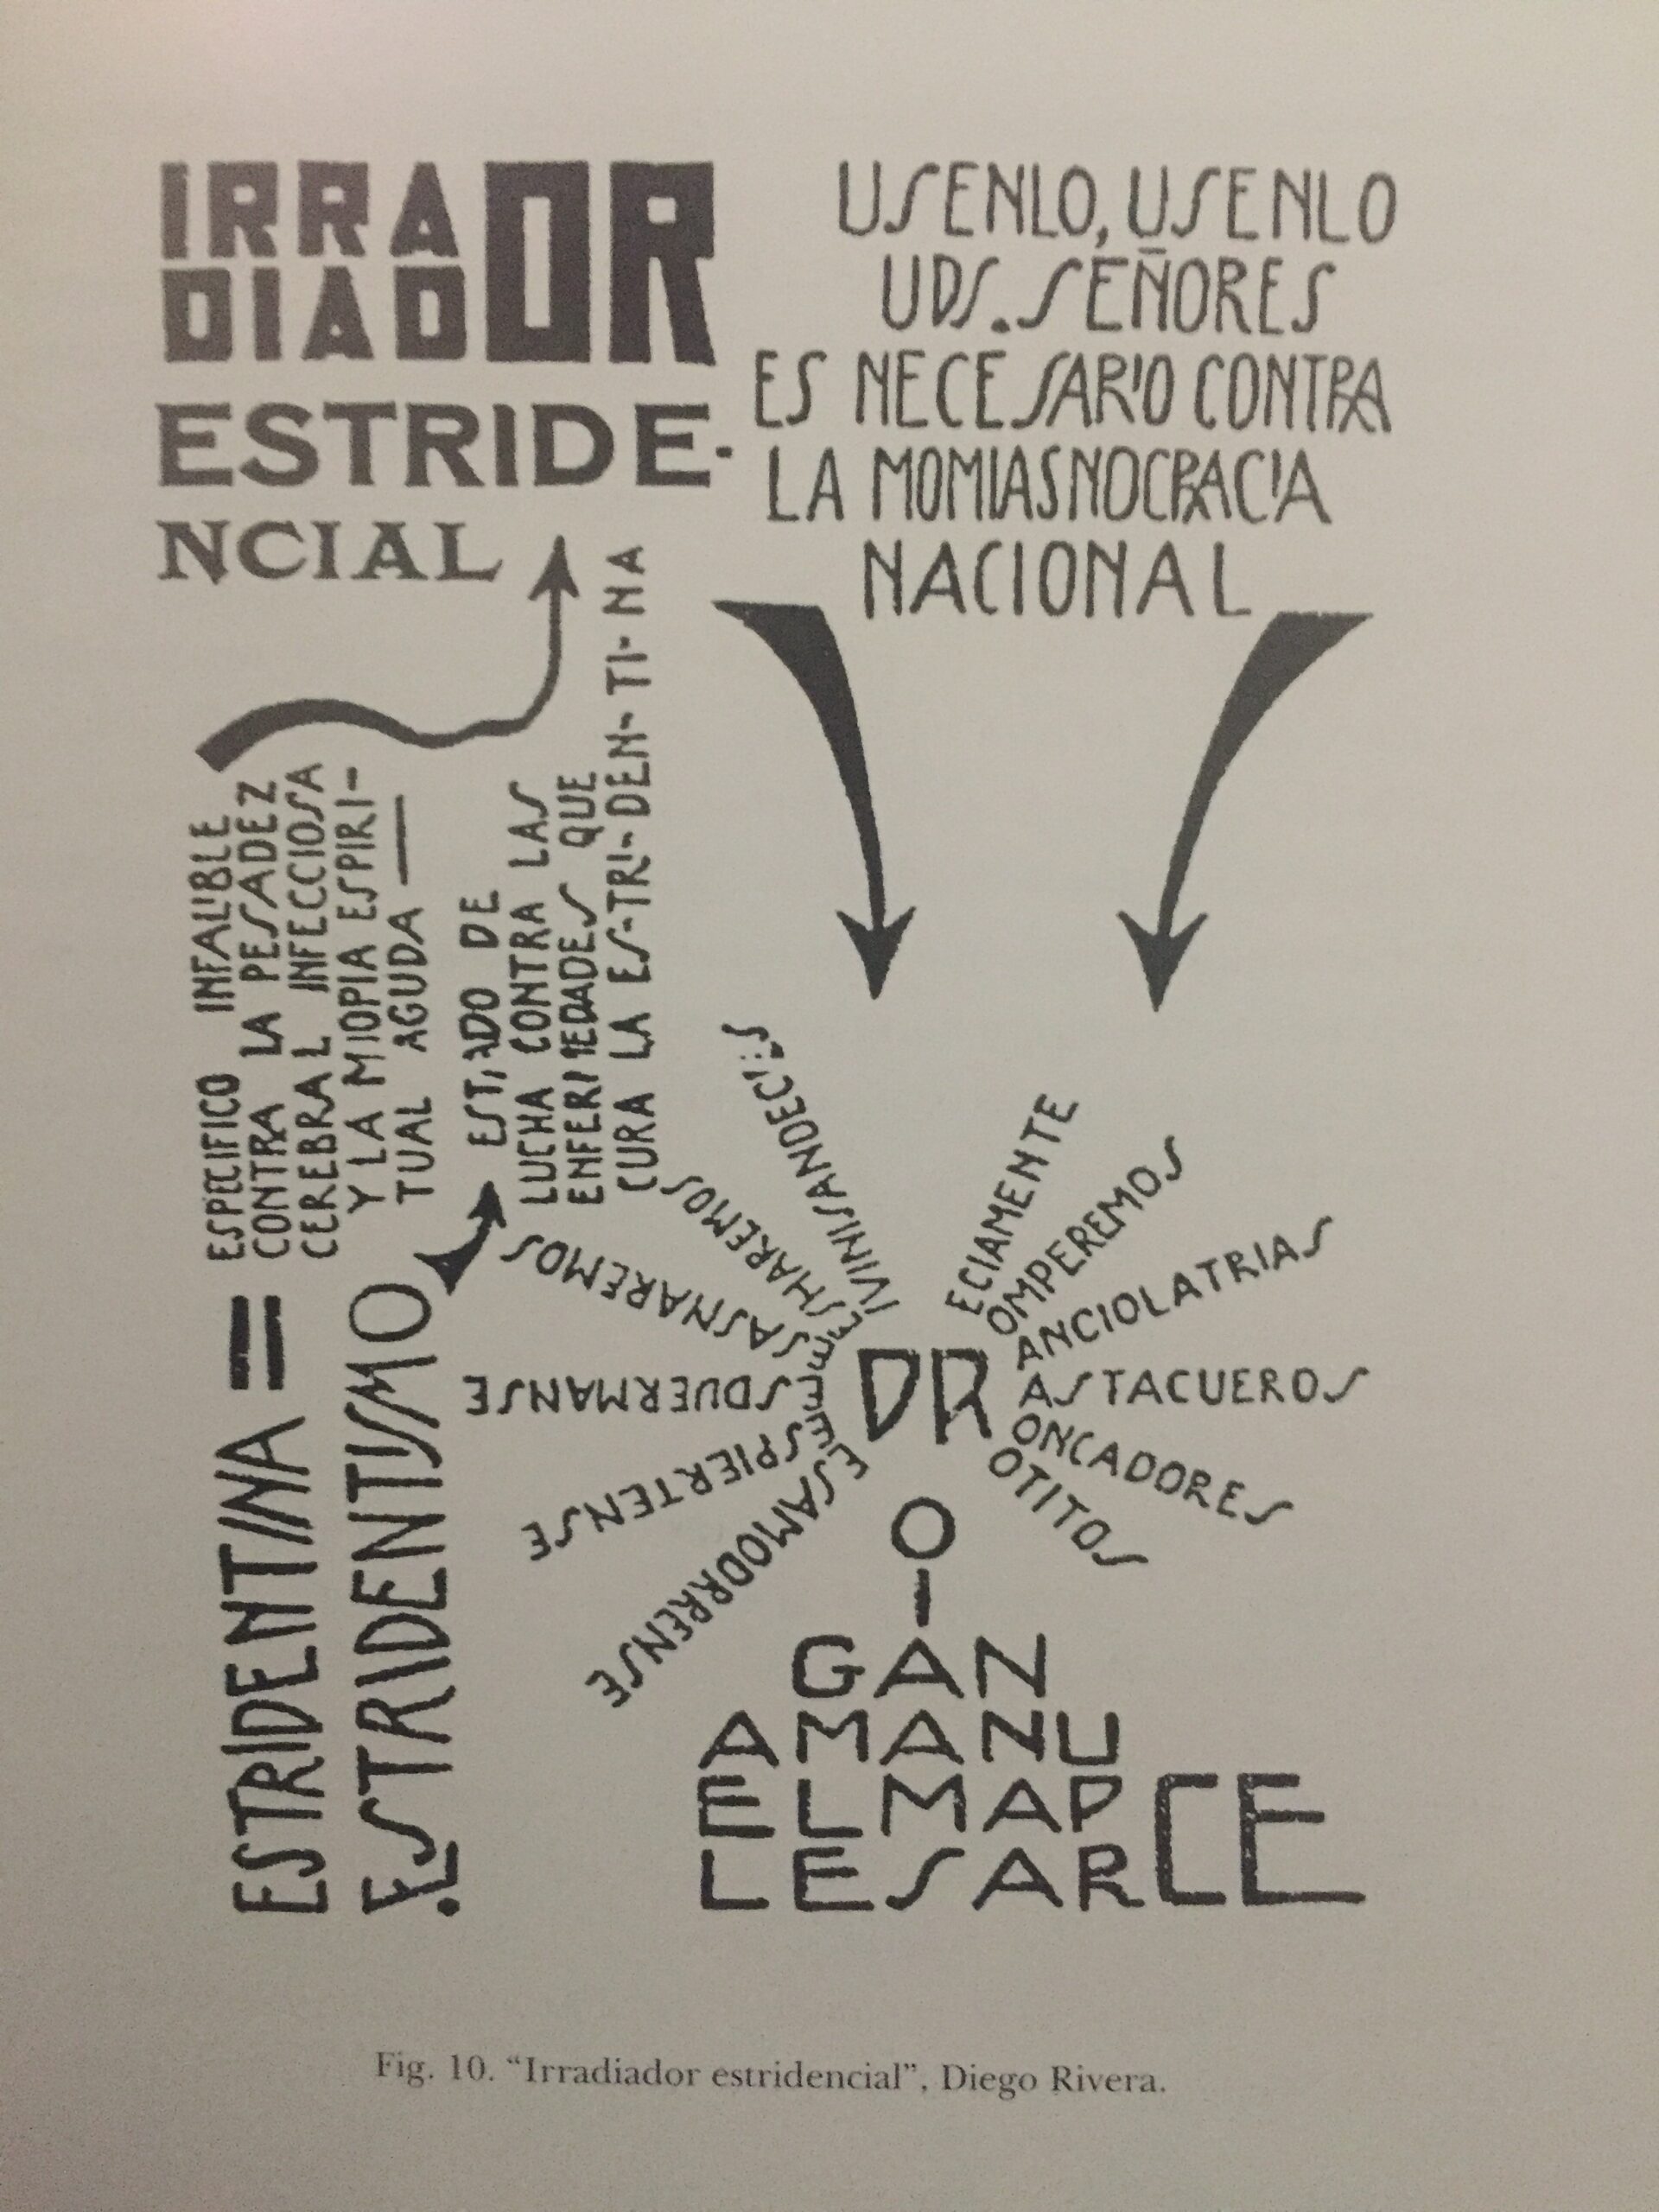 IRRA
DIADOR
ESTRIDE-
NCIAL
USENLO, USENLO
UDS. SEÑORES
ES NECESARIO CONTRA
LA MOMIASNOCRACIA
NACIONAL
ESTRIDENTINA =
ESPECIFICO INFALIBLE
CONTRA LA PESADEZ
CEREBRAL INFECCIOSA
Y LA MIOPIA ESPIRI-
TUAL AGUDA —
ESTRIDENTISMO
ESTADO DE
LUCHA CONTRA LAS
ENFERMEDADES QUE
CURA LA ES-TRI-DEN-TI-NA
ESHAREMOS
ESASNAREMOS
ESDUERMANSE
ESPIERTENSE
ESAMODRRENSE
DR
ECIAMENTE
OMPEREMOS
ANCIOLATRIAS
ASTACUEROS
ONCADORES
OTITOS
O
I
GAN
AMANU
ELMAP
LESARCE
Fig. 10. “Irradiador estridencial”, Diego Rivera.